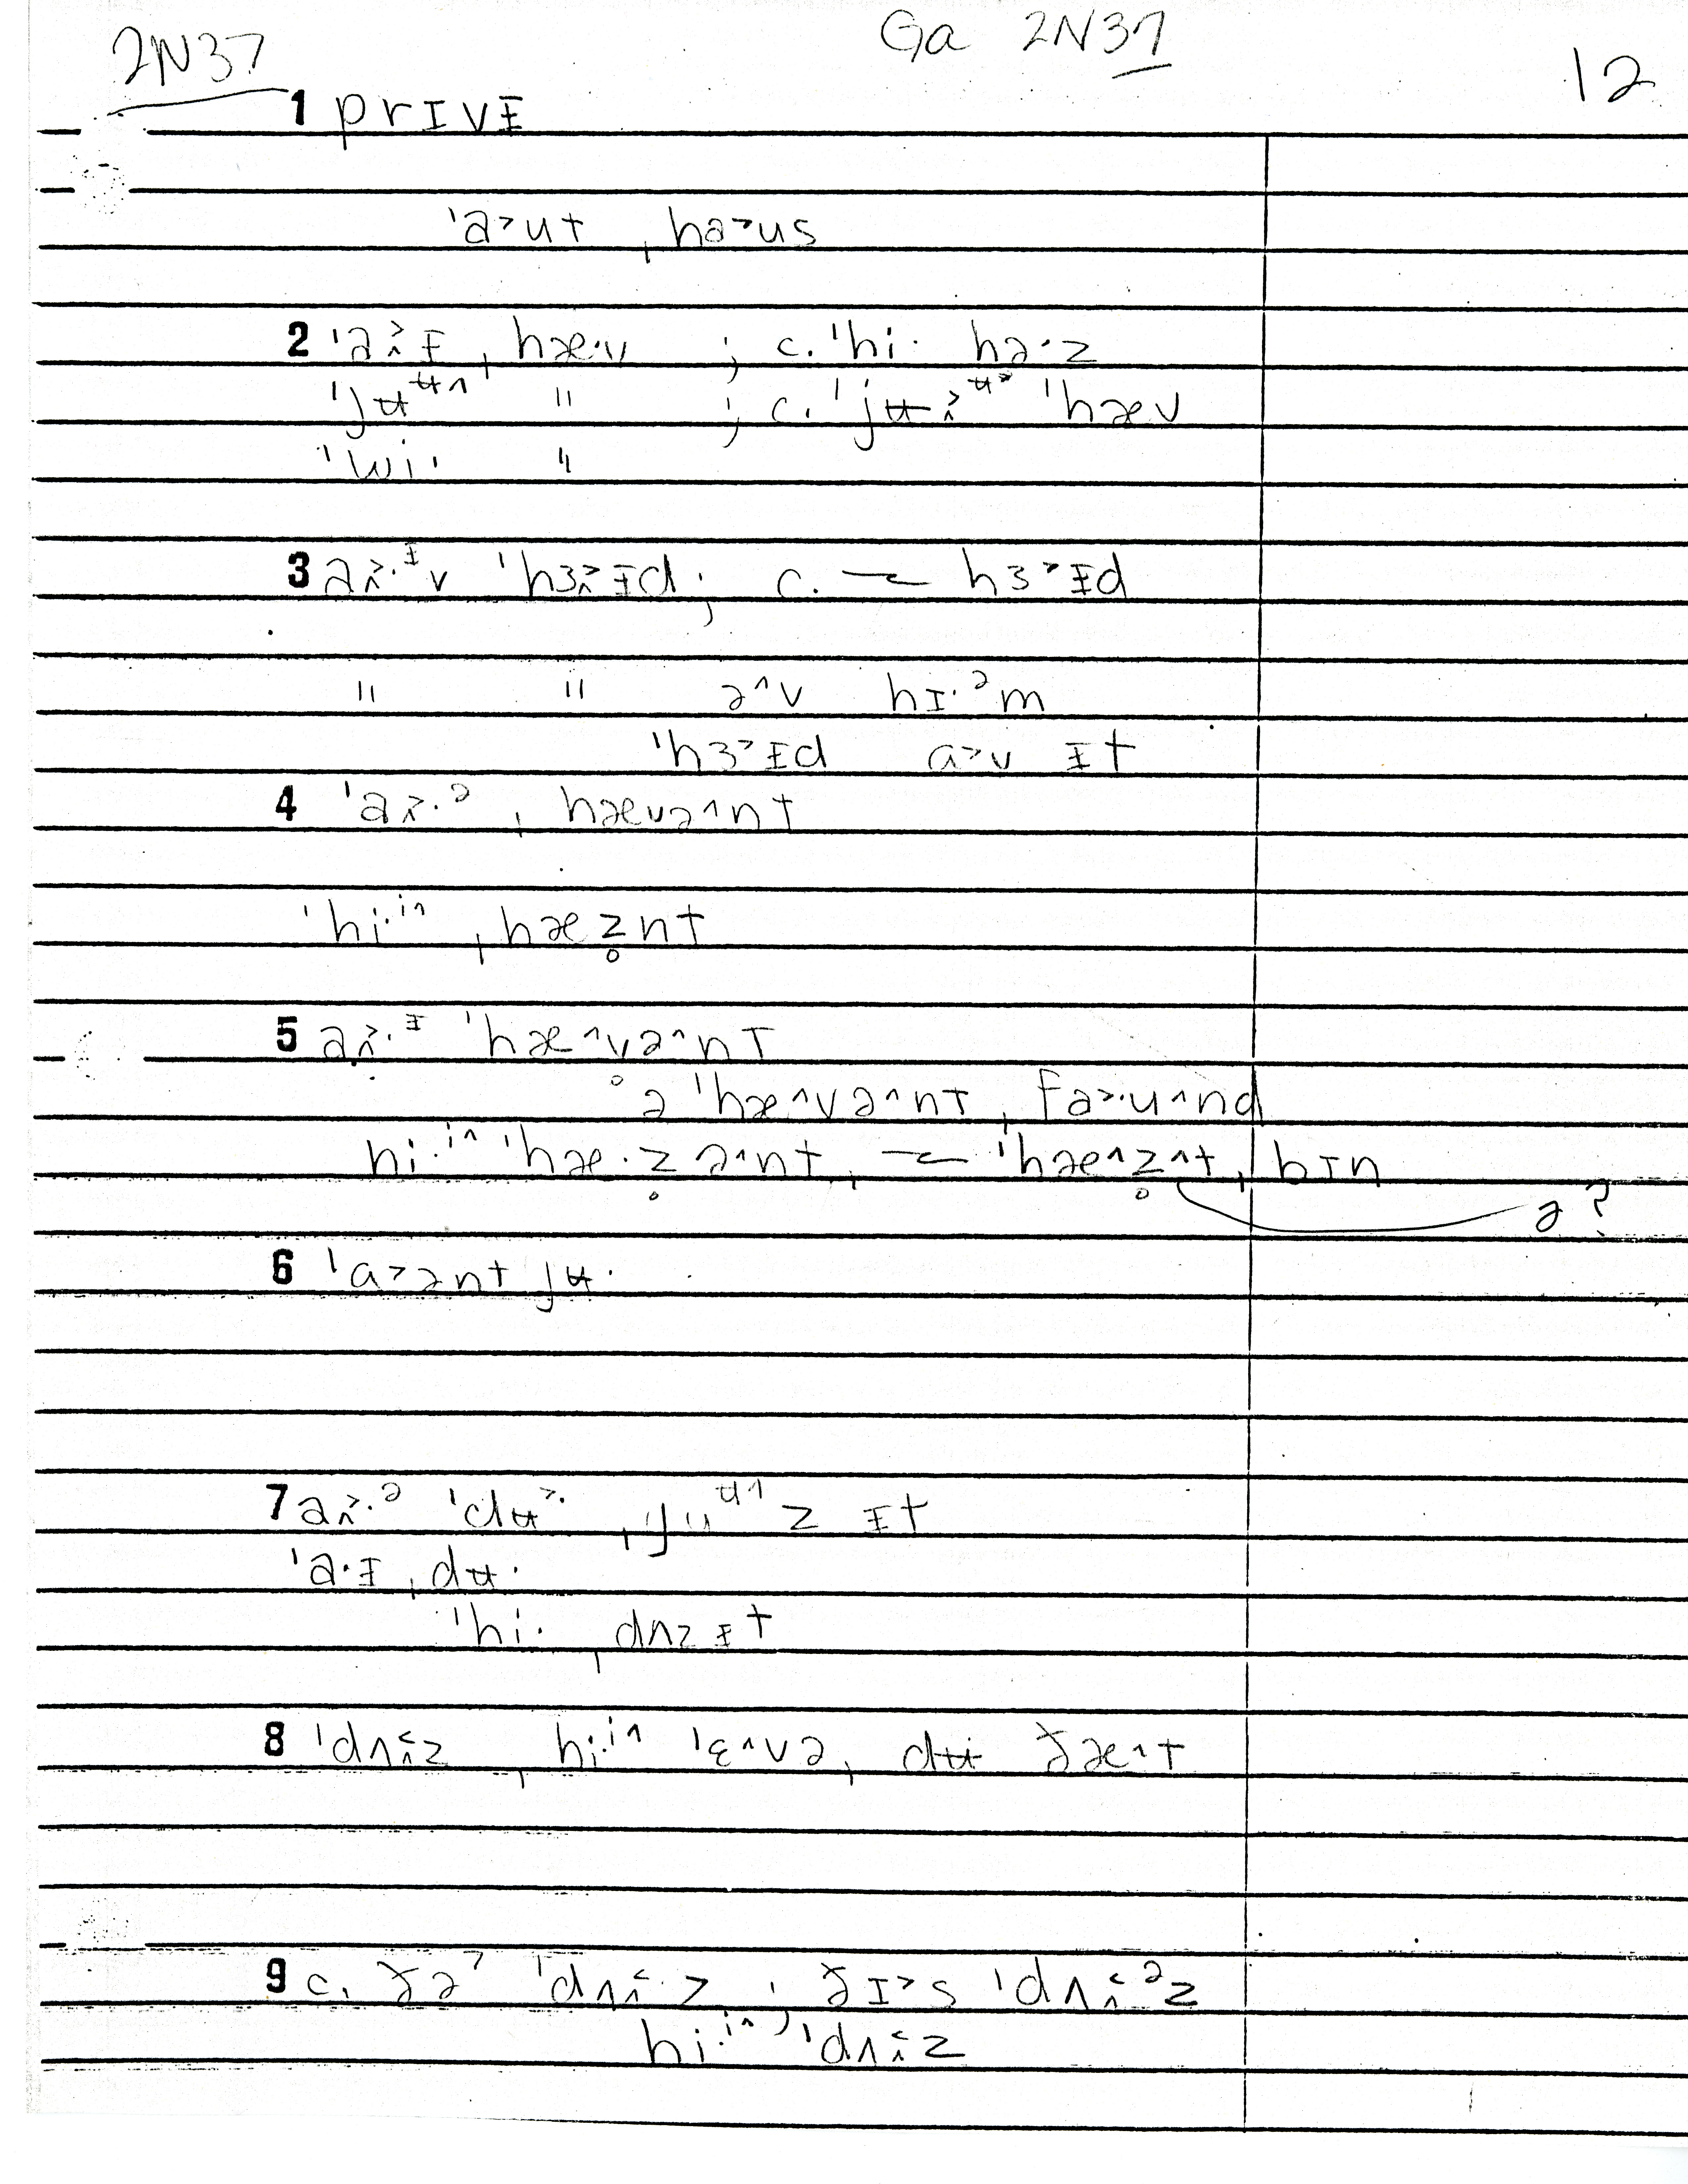 2N37 Ga 2N37 12
1 prɪvᵻ
ˈa˃ut ˌha˃us
2 ˈa˃̭ᵻ ˌhæ·v ; c. ˈhi· hə·z
ˈjʉᶶ^ " ; c. ˈjʉ˃̭ᶶ˃ ˈhæv
ˈwi· "
3 a˃̭·ᵻv ˈhɜ˃̭ᵻd ; c. ~ hɜ˃ᵻd
" " ə^v hɪ·ᵊm
ˈhɜ˃ᵻd ɑ˃v ᵻt
4 ˈa˃̭·ᵊ ˌhævə^nt
ˈhi·ⁱ^ ˌhæz̥nt
5 a˃̭·ᵻ ˈhæ^v̥ə^nt
ə ˈhæ^və^nt ˌfa˃·u^nd
hi·ⁱ^ ˈhæ·z̥ə^nt, ~ ˈhæ^z̥^t ˌbɪn
ə?
6 ˈɑ˃ənt jʉ·
7 a˃̭·ᵊ ˈdʉ˃· ˌjuᶶ^z ᵻt
ˈa·ᵻ ˌdʉ·
ˈhi· ˌdʌzᵻt
8 ˈdʌ˂̭z ˌhi·ⁱ^ ˈɛ^və ˌdʉ ðæ^t
9 c. ðə˃ ˈdʌ˂̭·z ; ðɪ˃s ˈdʌ˂̭ᵊz
hi·ⁱ^ ˈdʌ˂̭z